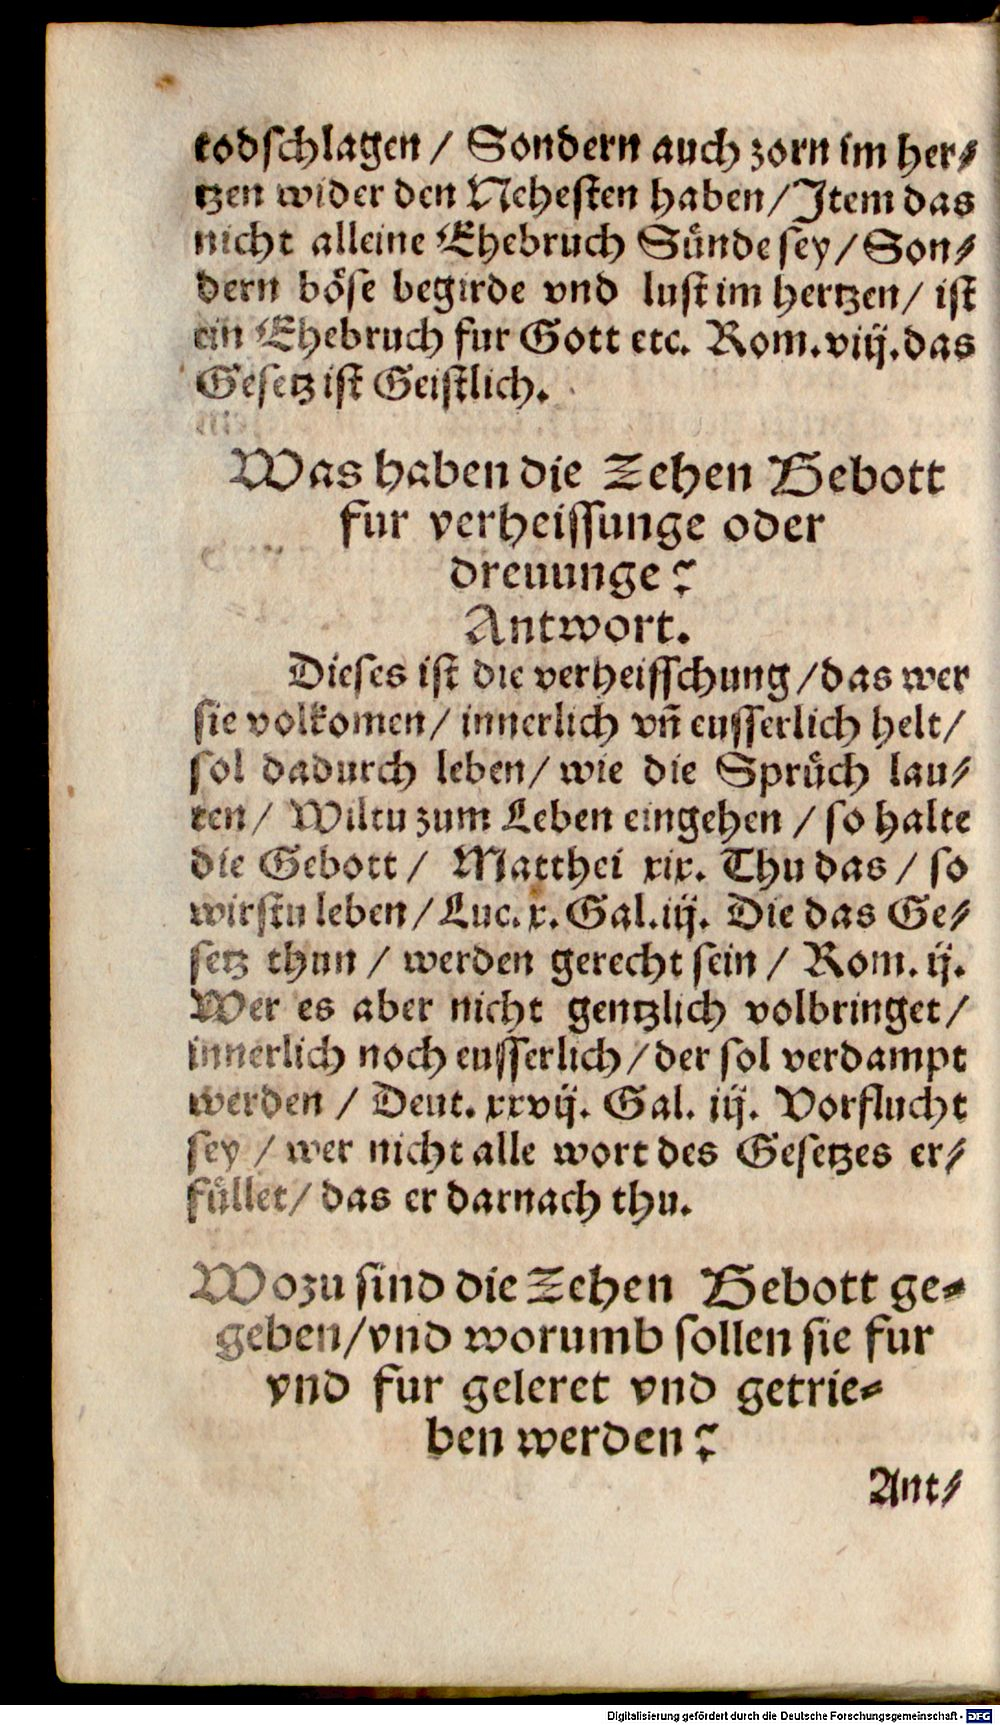 todschlagen / Sondern auch zorn im her⸗
tzen wider den Nehesten haben / Item das
nicht alleine Ehebruch Sünde sey / Son⸗
dern böse begirde vnd lust im hertzen / ist
ein Ehebruch fur Gott etc. Rom. viij. das
Gesetz ist Geistlich.
Was haben die Zehen Gebott
fur verheissunge oder
dreuunge?
Antwort.
Dieses ist die verheisschung / das wer
sie volkomen / innerlich vñ eusserlich helt /
sol dadurch leben / wie die Sprüch lau⸗
ten / Wiltu zum Leben eingehen / so halte
die Gebott / Matthei xix. Thu das / so
wirstu leben / Luc. x. Gal. iij. Die das Ge⸗
setz thun / werden gerecht sein / Rom. ij.
Wer es aber nicht gentzlich volbringet /
innerlich noch eusserlich / der sol verdampt
werden / Deut. xxvij. Gal. iij. Vorflucht
sey / wer nicht alle wort des Gesetzes er⸗
füllet / das er darnach thu.
Wozu sind die Zehen Gebott ge⸗
geben / vnd worumb sollen sie fur
vnd fur geleret vnd getrie⸗
ben werden?
Ant⸗
Digitalisierung gefördert durch die Deutsche Forschungsgemeinschaft - DFG